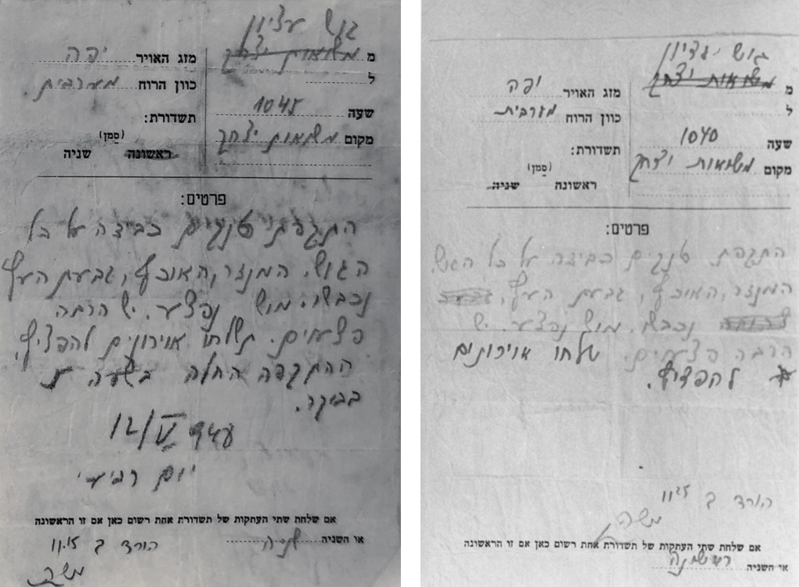 גוש עציון
מ משואות יצחק
ל
שעה 1045
מקום משואות יצחק
מזג האויר יפה
כוון הרוח מערבית.
תשדורת:
(סמן)
ראשונה שניה
פרטים:
התקפת טנקים כבידה על כל
הגוש. המנזר, האוכף, גבעת העץ
נכבשו. מוש נפצע. יש הרבה
פצועים. תשלחו אוירונים להפציץ.
ההתקפה החלה בשעה 5
בבקר.
12/V
יום רביעי
אם שלחת שתי העתקות של תשדורת אחת רשום כאן אם זו הראשונה
או השניה שניה
הורד ב 11.15
משה
גוש עציון
מ משואות יצחק
ל
שעה 1040
מקום משואות יצחק
מזג האויר יפה
כוון הרוח מערבית
תשדורת:
(סמן)
ראשונה שניה
פרטים:
התקפת טנקים כבידה על כל הגוש.
המנזר, האוכף, גבעת העץ,
נכבשו. מוש נפצע. יש
הרבה פצועים. שלחו אוירונים
להפציץ.
הורד ב 11.15
משה
אם שלחת שתי העתקות של תשדורת אחת רשום כאן אם זו הראשונה
או השניה ראשונה